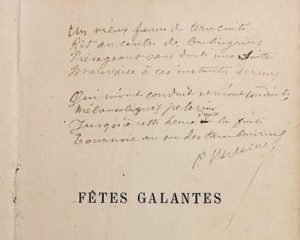 Un vieux faune de terre cuite
Rit au centre des boulingrins
Présageant sans doute une suite
Mauvaise à ces instants sereins
Qui m'ont conduit et t'ont conduite
Mélancoliques pèlerins
Jusqu'à cette heure dont la fuite
Tournoie au son des tambourins
P. Verlaine
FÊTES GALANTES